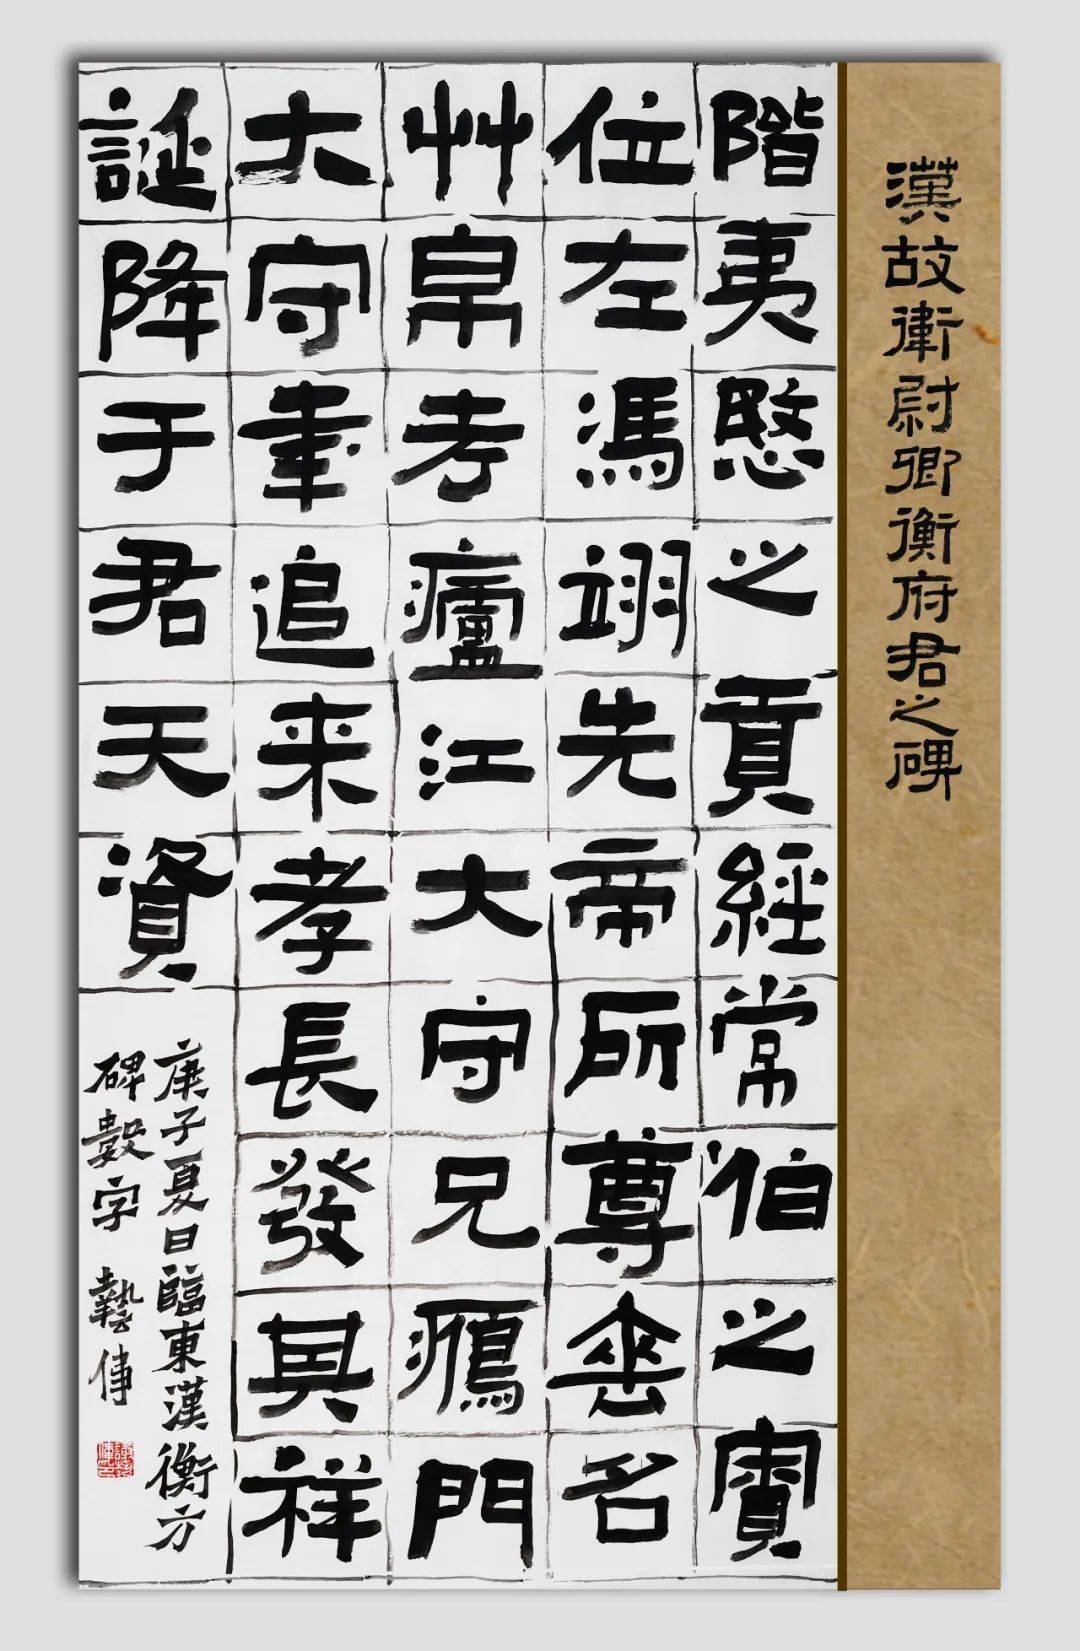 漢故衛尉卿衡府君之碑
階夷愍之貢經常伯之寮
位左馮翊先帝所尊垂名
竹帛考廬江大守兄鴈門
大守聿追来孝長發其祥
誕降于君天資
庚子夏日臨東漢衡方
碑數字 藝偉